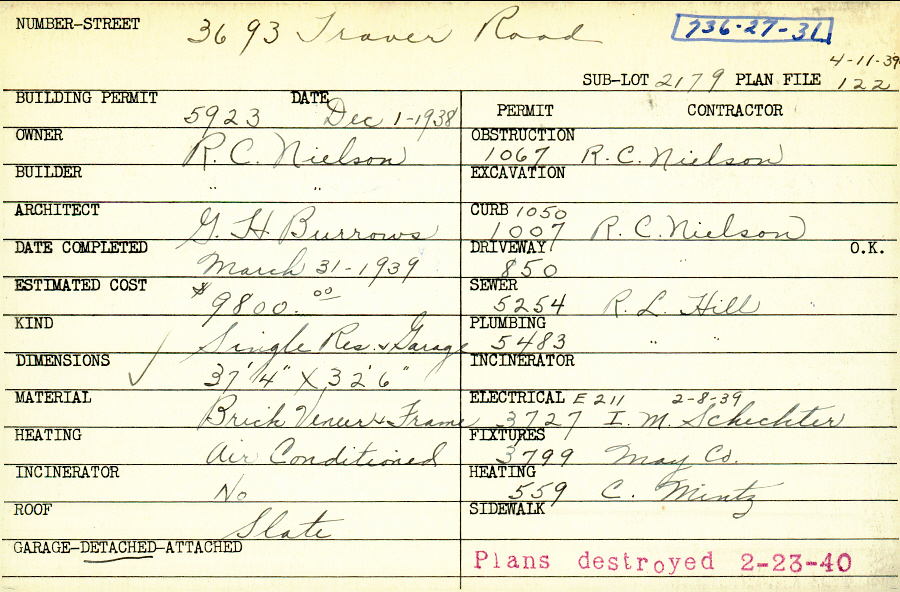 NUMBER-STREET 3693 Traver Road 736-27-31
4-11-39
SUB-LOT 2179 PLAN FILE 122
BUILDING PERMIT 5923 DATE Dec 1-1938
OWNER R. C. Nielson
BUILDER " "
ARCHITECT G. H. Burrows
DATE COMPLETED March 31-1939
ESTIMATED COST $9800.00
KIND Single Res. & Garage
DIMENSIONS 37'4" X 32'6"
MATERIAL Brick Veneer & Frame
HEATING Air Conditioned
INCINERATOR No
ROOF Slate
GARAGE-DETACHED-ATTACHED
PERMIT CONTRACTOR
OBSTRUCTION 1067 R. C. Nielson
EXCAVATION
CURB 1050
1007 R. C. Nielson
DRIVEWAY 850 " O.K.
SEWER 5254 R. L. Hill
PLUMBING 5483 " "
INCINERATOR
ELECTRICAL E 211 2-8-39
3727 I. M. Schechter
FIXTURES 3799 May Co.
HEATING 559 C. Mintz
SIDEWALK
Plans destroyed 2-23-40